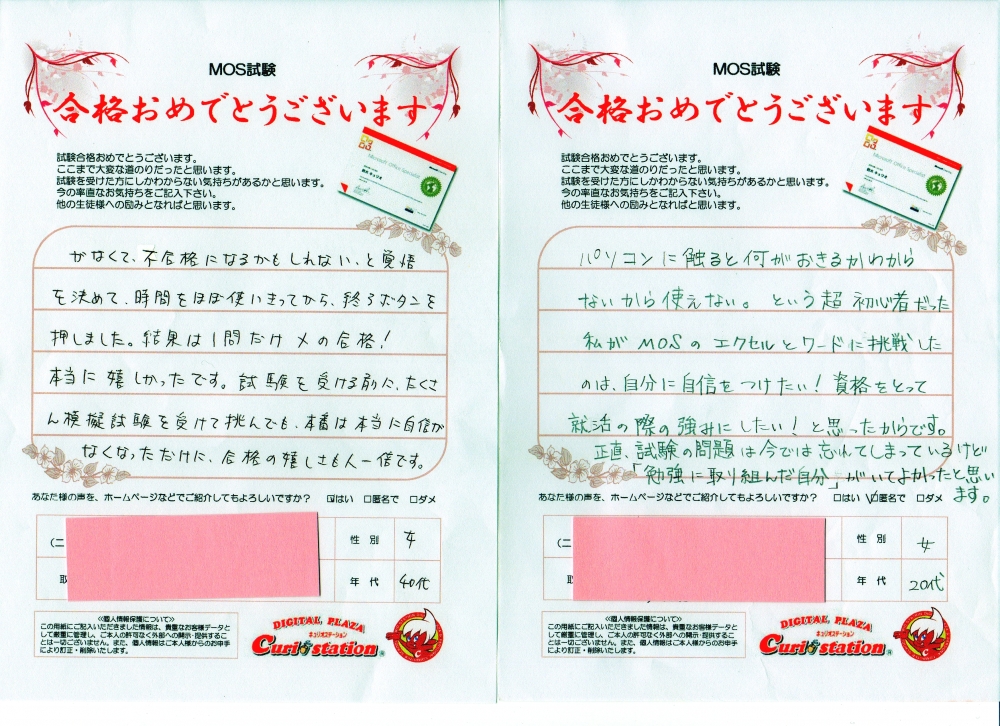 MOS試験
合格おめでとうございます
試験合格おめでとうございます。
ここまで大変な道のりだったと思います。
試験を受けた方にしかわからない気持ちがあるかと思います。
今の率直なお気持ちをご記入下さい。
他の生徒様への励みとなればと思います。
Microsoft Office Specialist
がなくて、不合格になるかもしれない、と覚悟
を決めて、時間をほぼ使いきってから、終了ボタンを
押しました。結果は1問だけメの合格!
本当に嬉しかったです。試験を受ける前に、たくさ
ん模擬試験を受けて挑んでも、本番は本当に自信が
なくなっただけに、合格の嬉しさも人一倍です。
あなた様の声を、ホームページなどでご紹介してもよろしいですか? ☑はい □匿名で □ダメ
(ニ
性別 女
取
年代 40代
≪個人情報保護について≫
この用紙にご記入いただきました情報は、貴重なお客様データと
して厳重に管理し、ご本人の許可なく外部への開示・提供するこ
とは一切ございません。また、個人情報はご本人様からのお申手
により訂正・削除いたします。
DIGITAL PLAZA
キュリオステーション
Curio station
MOS試験
合格おめでとうございます
試験合格おめでとうございます。
ここまで大変な道のりだったと思います。
試験を受けた方にしかわからない気持ちがあるかと思います。
今の率直なお気持ちをご記入下さい。
他の生徒様への励みとなればと思います。
Microsoft Office Specialist
パソコンに触ると何がおきるかわから
ないから使えない。という超初心者だった
私がMOSのエクセルとワードに挑戦した
のは、自分に自信をつけたい!資格をとって
就活の際の強みにしたい!と思ったからです。
正直、試験の問題は今では忘れてしまっているけど
「勉強に取り組んだ自分」がいてよかったと思い
ます。
あなた様の声を、ホームページなどでご紹介してもよろしいですか? □はい ☑匿名で □ダメ
(ニ
性別 女
取
年代 20代
≪個人情報保護について≫
この用紙にご記入いただきました情報は、貴重なお客様データと
して厳重に管理し、ご本人の許可なく外部への開示・提供するこ
とは一切ございません。また、個人情報はご本人様からのお申手
により訂正・削除いたします。
DIGITAL PLAZA
キュリオステーション
Curio station